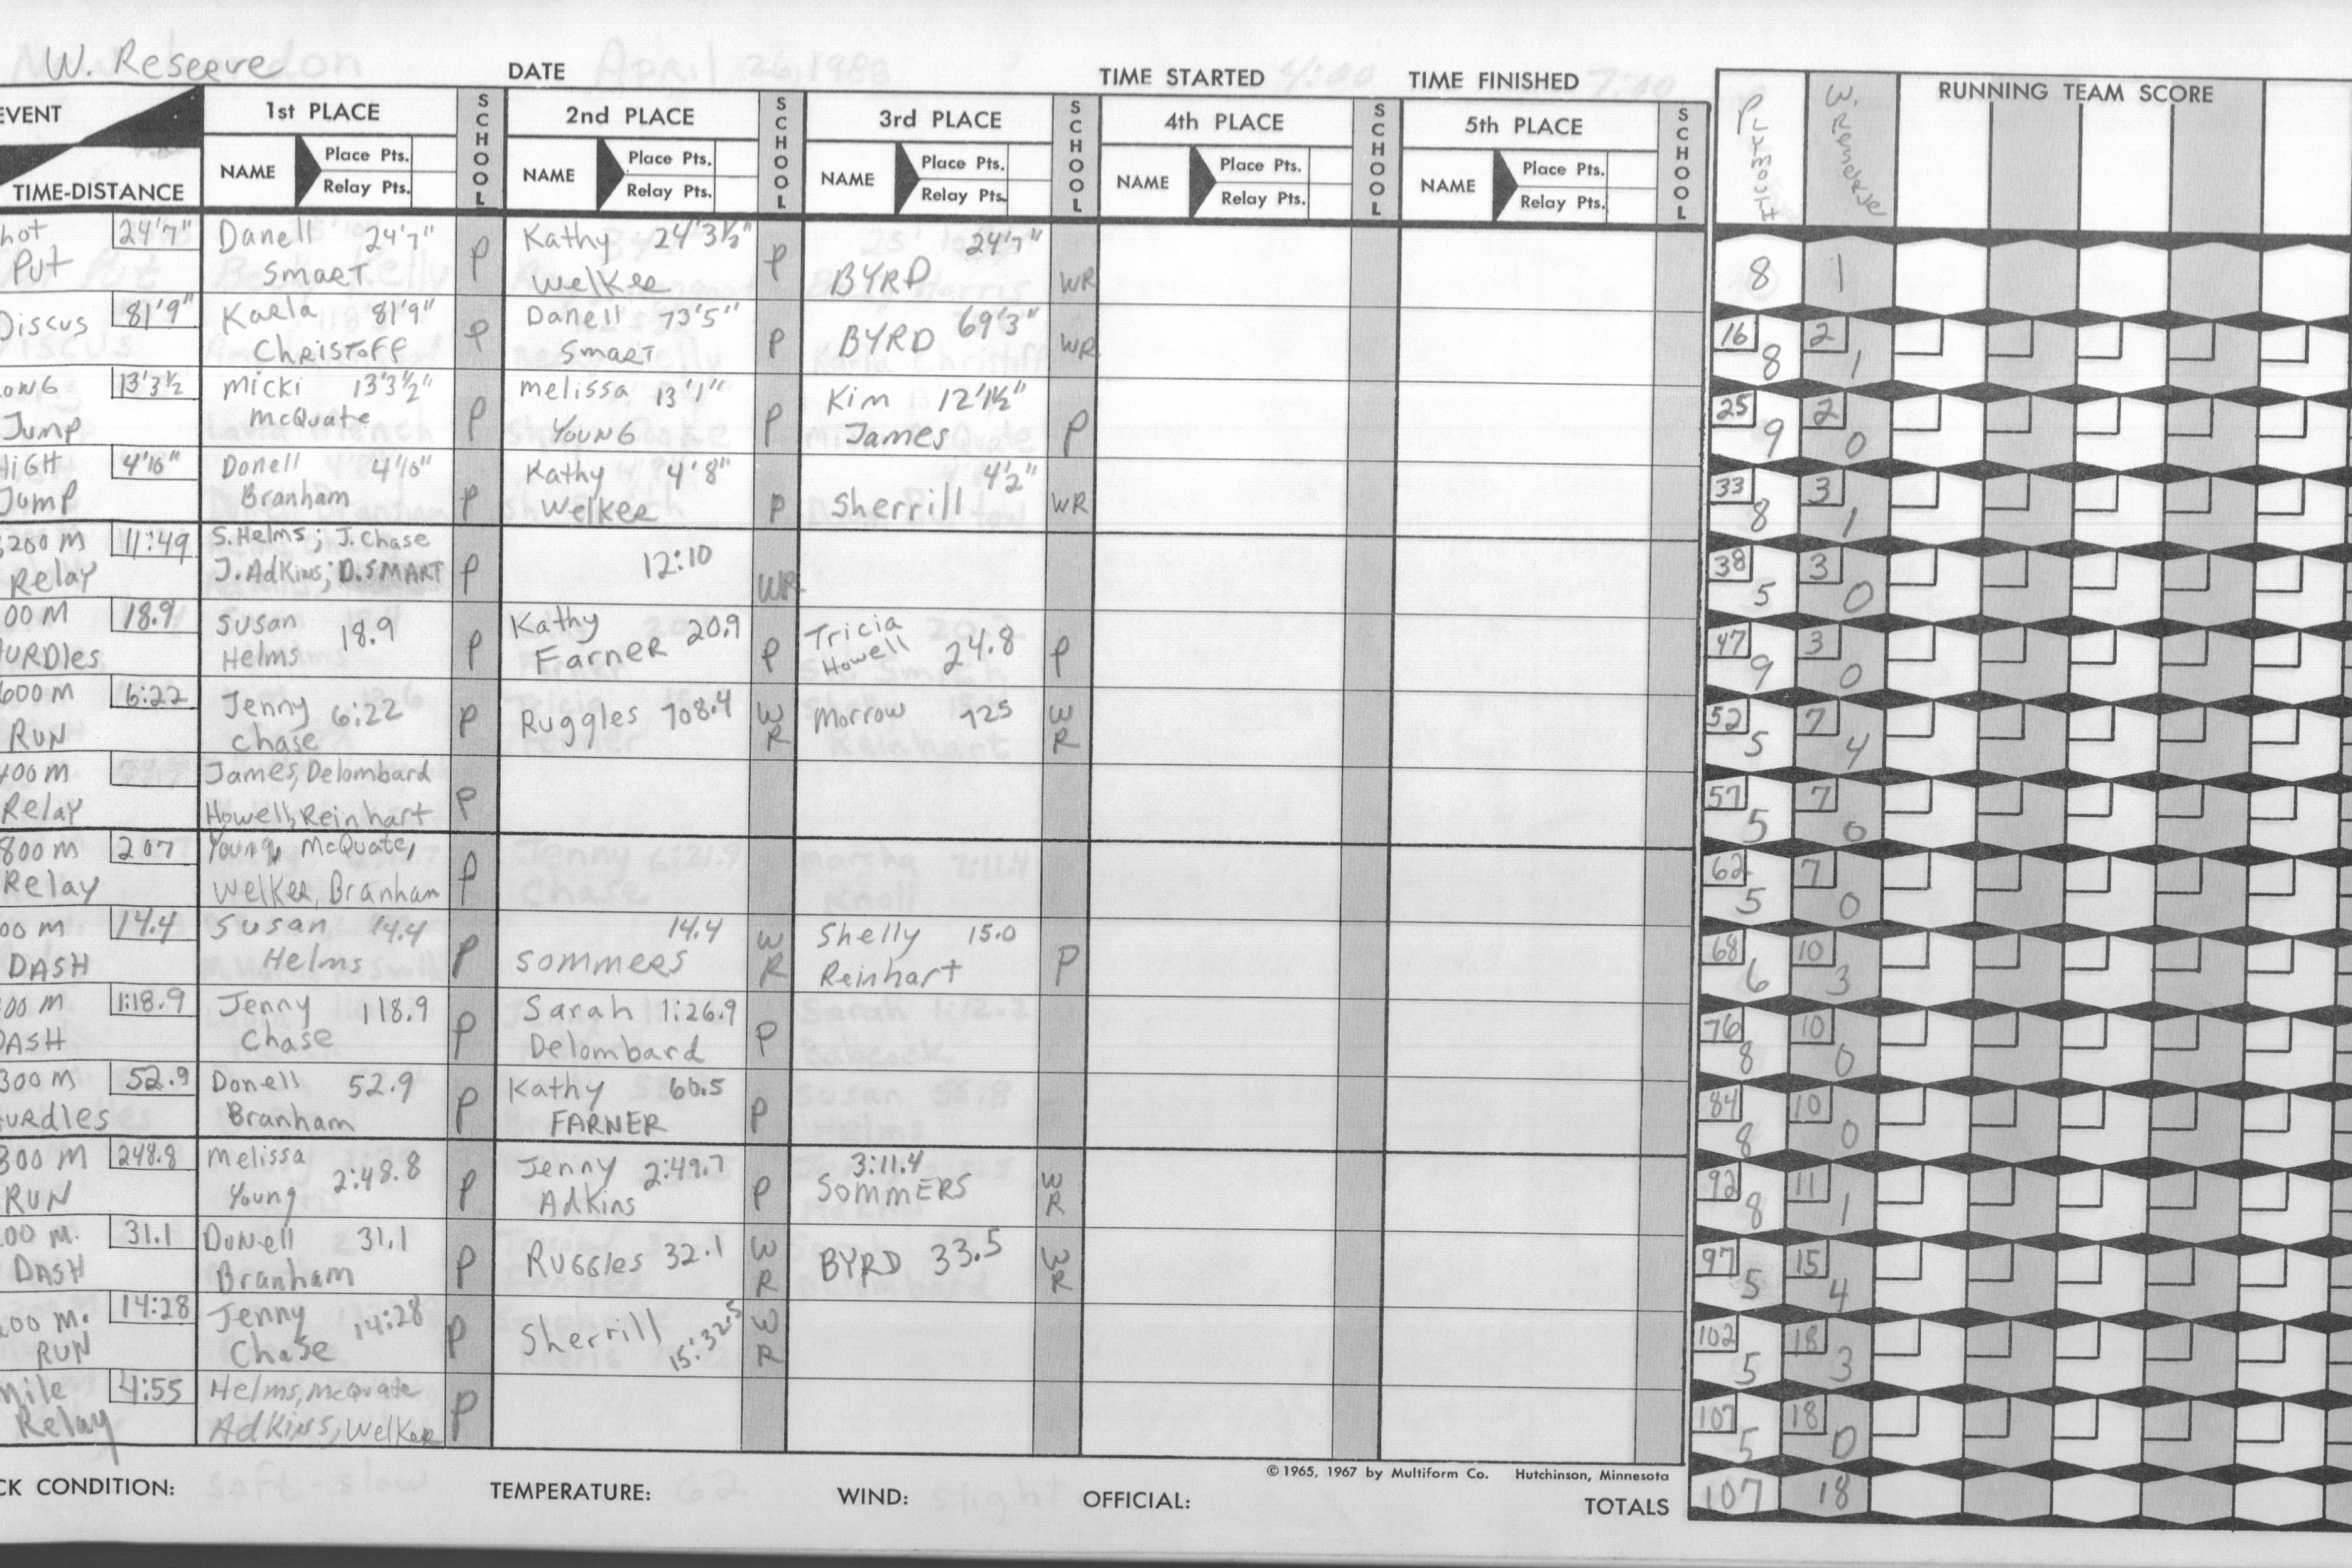 W. Reserve
DATE April 26, 1983 TIME STARTED 4:00 TIME FINISHED 7:00
EVENT 1st PLACE SCHOOL 2nd PLACE SCHOOL 3rd PLACE SCHOOL 4th PLACE SCHOOL 5th PLACE SCHOOL W. Reserve RUNNING TEAM SCORE
TIME-DISTANCE NAME Place Pts. NAME Place Pts. NAME Place Pts. NAME Place Pts. NAME Place Pts.
Relay Pts. Relay Pts. Relay Pts. Relay Pts. Relay Pts.
hot 24'7" Danell 24'7" P Kathy 24'3½" P 24'7" WR 8 1
Put Smart Welker BYRD
Discus 81'9" Karla 81'9" P Danell 73'5" P BYRD 69'3" WR 16 8 2 1
Christoff Smart
ong 13'3½ Micki 13'3½" P Melissa 13'1" P Kim 12'1½" P 25 9 2 0
Jump McQuate Young James
High 4'10" Donell 4'10" P Kathy 4'8" P 4'2" WR 33 8 3 1
Jump Branham Welker Sherrill
200 M 11:49 S. Helms; J. Chase P 12:10 WR 38 5 3 0
Relay J. Adkins; D. SMART
00 M 18.9 Susan 18.9 P Kathy 20.9 P Tricia 24.8 P 47 9 3 0
URDles Helms Farner Howell
600 M 6:22 Jenny 6:22 P Ruggles 708.4 WR Morrow 725 WR 52 5 7 4
RUN Chase
400 M James, Delombard P 57 5 7 0
Relay Howell, Reinhart
800 M 207 Young, McQuate, P 62 5 7 0
Relay Welker, Branham
00 M 14.4 Susan 14.4 P 14.4 WR Shelly 15.0 P 68 6 10 3
DASH Helms Sommers Reinhart
00 M 1:18.9 Jenny 118.9 P Sarah 1:26.9 P 76 8 10 0
DASH Chase Delombard
300 M 52.9 Donell 52.9 P Kathy 60.5 P 84 8 10 0
urdles Branham FARNER
800 M 248.8 Melissa 2:48.8 P Jenny 2:49.7 P 3:11.4 WR 92 8 11 1
RUN Young Adkins SOMMERS
00 M. 31.1 Donell 31.1 P Ruggles 32.1 WR BYRD 33.5 WR 97 5 15 4
DASH Branham
00 M. 14:28 Jenny 14:28 P Sherrill 15:32.5 WR 102 5 18 3
RUN Chase
Mile 4:55 Helms, McQuate P 107 5 18 0
Relay Adkins, Welker
© 1965, 1967 by Multiform Co. Hutchinson, Minnesota
CK CONDITION: soft - slow TEMPERATURE: 62 WIND: slight OFFICIAL: TOTALS 107 18